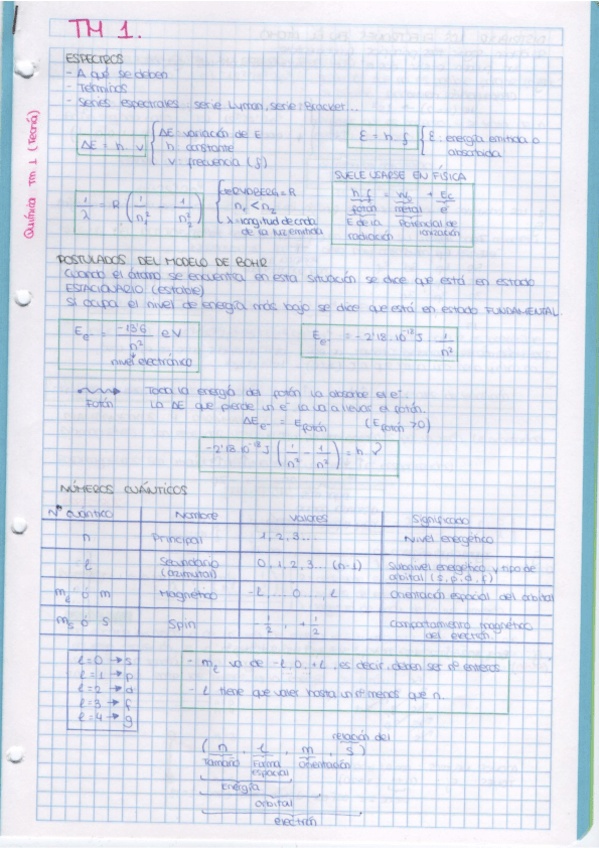 TM 1.
Química TM 1 (Teoría)
ESPECTROS
- A qué se deben
- Términos
- Series espectrales: serie Lyman, serie Bracket...
ΔE = h · ν { ΔE: variación de E
h constante
ν frecuencia (f)
E = h · f { E: energía emitida o absorbida
SUELE USARSE EN FÍSICA
1/λ = R (1/n₁² - 1/n₂²) { de RYDBERG = R
n₁ < n₂
λ = longitud de onda
de la luz emitida
h·f = W₀ + Ec
fotón metal e⁻
E de la Potencial de
radiación ionización
POSTULADOS DEL MODELO DE BOHR
Cuando el átomo se encuentra en esta situación se dice que está en estado
ESTACIONARIO (estable)
Si ocupa el nivel de energía más bajo se dice que está en estado FUNDAMENTAL.
E e⁻ = -13'6/n² eV
nivel electrónico
E e⁻ = -2'18·10⁻¹⁸ J · 1/n²
Fotón
Toda la energía del fotón la absorbe el e⁻
La ΔE que pierde un e⁻ la va a llevar el fotón.
ΔE e⁻ = E fotón (E fotón > 0)
-2'18·10⁻¹⁸ J (1/n² - 1/n²) = h ν
NÚMEROS CUÁNTICOS
Nº cuántico Nombre Valores Significado
n Principal 1, 2, 3... Nivel energético
ℓ Secundario (azimutal) 0, 1, 2, 3... (n-1) Subnivel energético y tipo de orbital (s, p, d, f)
mℓ ó m Magnético -ℓ, ... 0 ..., ℓ Orientación espacial del orbital
ms ó s Spin -1/2, +1/2 Comportamiento magnético del electrón.
ℓ=0 → s
ℓ=1 → p
ℓ=2 → d
ℓ=3 → f
ℓ=4 → g
- mℓ va de -ℓ, 0, +ℓ, es decir, deben ser nº enteros
- ℓ tiene que valer hasta un nº menos que n.
rotación del
(n, ℓ, m, s)
Tamaño Forma espacial Orientación
energía
orbital
electrón